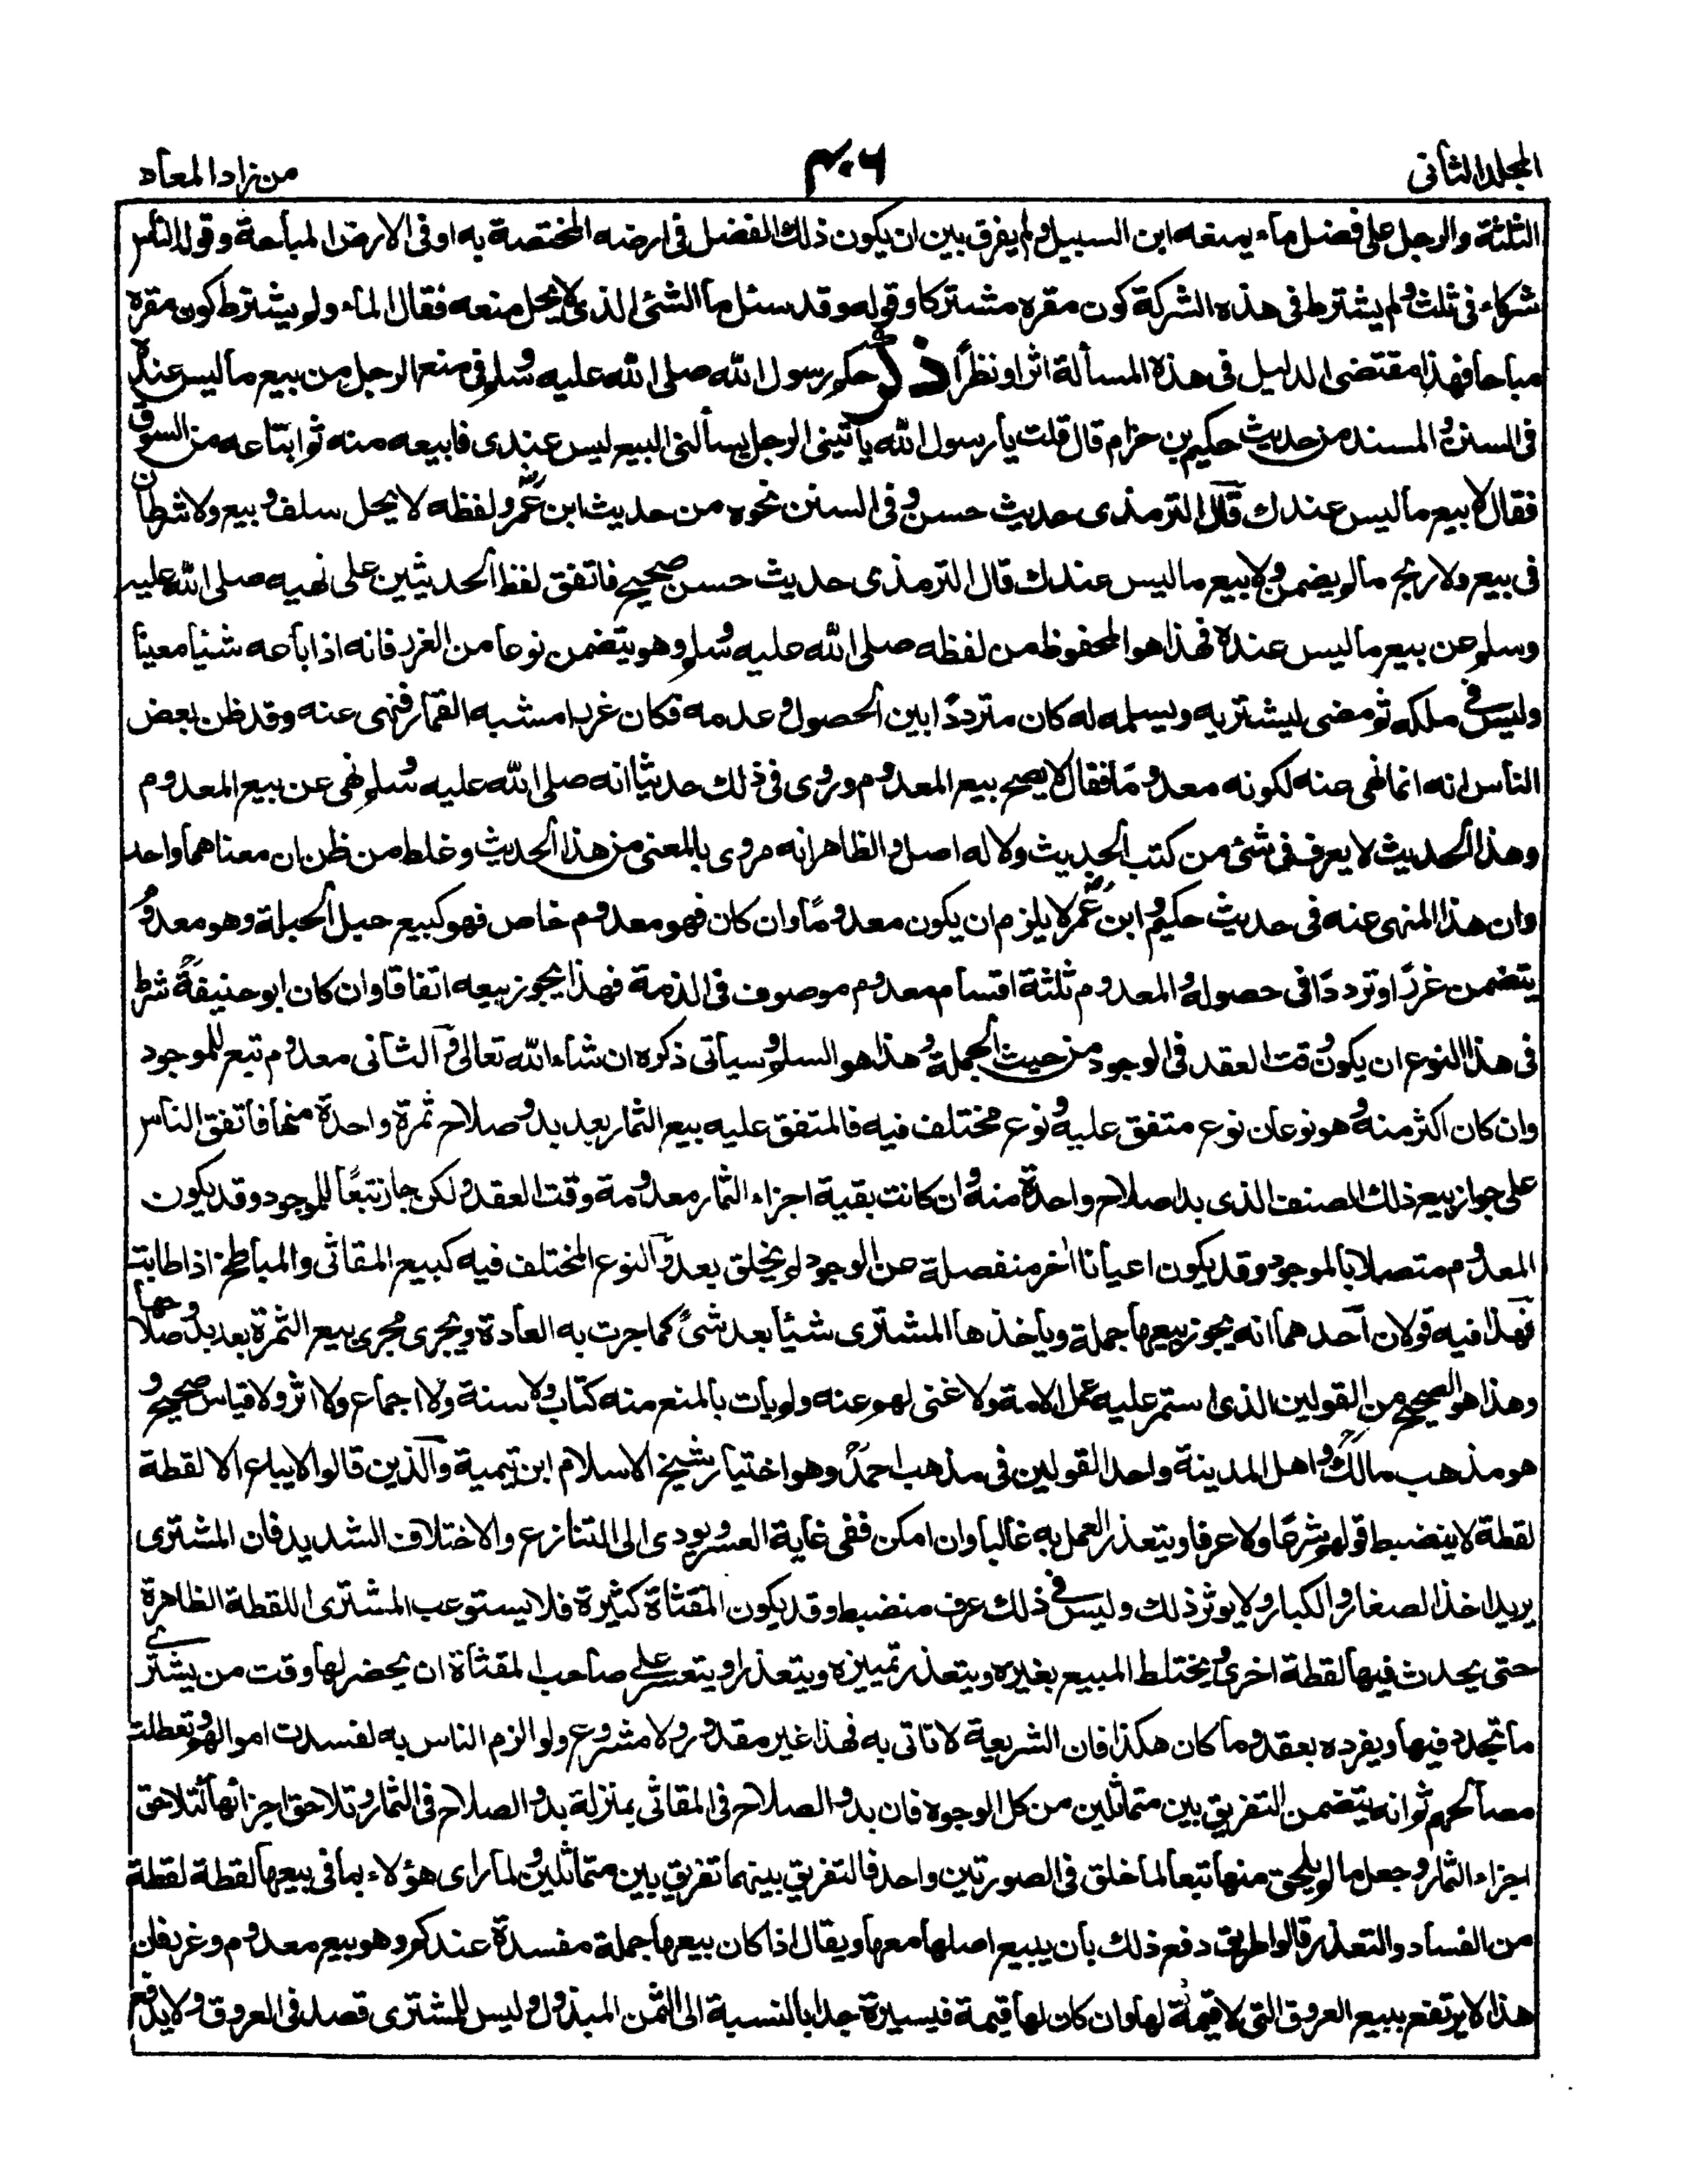 المجلد الثانى
۴۰۶
من زاد المعاد
الثلثة والرجل على فضل ماء يمنعه ابن السبيل ولم يفرق بين ان يكون ذلك الفضل فى ارضه المختصة به او فى الارض المباحة وقوله الناس
شركاء فى ثلث ولم يشترط فى هذه الشركة كون مقره مشتركا وقوله وقد سئل ما الشئ الذى لا يحل منعه فقال الماء ولم يشترط كون مقره
مباحا فهذا مقتضى الدليل فى هذه المسألة اثرا ونظرًا ذكر حكم رسول الله صلى الله عليه وسلم فى منع الرجل من بيع ما ليس عنده
فى السنن والمسند من حديث حكيم بن حزام قال قلت يا رسول الله ياتينى الرجل يسألنى البيع ليس عندى فابيعه منه ثم ابتاعه من السوق
فقال لا بيع ما ليس عندك قال الترمذى حديث حسن وفى السنن نحوه من حديث ابن عمرؓ ولفظه لا يحل سلف وبيع ولا شرطان
فى بيع ولا ربح ما لم يضمن ولا بيع ما ليس عندك قال الترمذى حديث حسن صحيح فاتفق لفظ الحديثين على نهيه صلى الله عليه
وسلم عن بيع ما ليس عنده فهذا هو المحفوظ من لفظه صلى الله عليه وسلم وهو يتضمن نوعا من الغرر فانه اذا باعه شيئا معينا
وليس فى ملكه ثم مضى ليشتريه ويسلمه له كان مترددًا بين الحصول وعدمه فكان غررا مشبه القمار فنهى عنه وقد ظن بعض
الناس انه انما نهى عنه لكونه معدومًا فقال لا يصح بيع المعدوم وروى فى ذلك حديثا انه صلى الله عليه وسلم نهى عن بيع المعدوم
وهذا الحديث لا يعرف فى شئ من كتب الحديث ولا له اصل والظاهر انه مروى بالمعنى من هذا الحديث وغلط من ظن ان معناهما واحد
وان هذا المنهى عنه فى حديث حكيم وابن عمرؓ لا يلزم ان يكون معدومًا وان كان فهو معدوم خاص فهو كبيع حبل الحبلة وهو معدوم
يتضمن غررًا وترددًا فى حصوله والمعدوم ثلثة اقسام معدوم موصوف فى الذمة فهذا يجوز بيعه اتفاقا وان كان ابو حنيفةؒ شرط
فى هذا النوع ان يكون وقت العقد فى الوجود من حيث الجملة وهذا هو السلم وسياتى ذكره ان شاء الله تعالى والثانى معدوم تبع للموجود
وان كان اكثر منه وهو نوعان نوع متفق عليه ونوع مختلف فيه فالمتفق عليه بيع الثمار بعد بدو صلاح ثمرة واحدة منها فاتفق الناس
على جواز بيع ذلك الصنف الذى بدا صلاح واحدة منه وان كانت بقية اجزاء الثمار معدومة وقت العقد ولكن جاز تبعًا للموجود وقد يكون
المعدوم متصلا بالموجود وقد يكون اعيانا اخر منفصلة عن الوجود لم يخلق بعد والنوع المختلف فيه كبيع المقاثى والمباطخ اذا طابت
فهذا فيه قولان احدهما انه يجوز بيعها جملة وياخذها المشترى شيئا بعد شئ كما جرت به العادة ويجرى مجرى بيع الثمرة بعد بدو صلاحها
وهذا هو الصحيح من القولين الذى استمر عليه عمل الامة ولا غنى لهم عنه ولم يات بالمنع منه كتاب ولا سنة ولا اجماع ولا اثر ولا قياس صحيح و
هو مذهب مالكؒ واهل المدينة واحد القولين فى مذهب احمدؒ وهو اختيار شيخ الاسلام ابن تيمية والذين قالوا لا يباع الا لقطة
لقطة لا ينضبط قولهم شرعًا ولا عرفا ويتعذر العمل به غالبا وان امكن ففى غاية العسر ويودى الى التنازع والاختلاف الشديد فان المشترى
يريد اخذ الصغار والكبار ولا يوثر ذلك وليس فى ذلك عرف منضبط وقد يكون المقثاة كثيرة فلا يستوعب المشترى اللقطة الظاهرة
حتى يحدث فيها لقطة اخرى ويختلط المبيع بغيره ويتعذر تمييزه ويتعذر او يتعسر على صاحب المقثاة ان يحضر لها وقت من يشترى
ما تجدد فيها ويفرده بعقد وما كان هكذا فان الشريعة لا تاتى به فهذا غير مقدور ولا مشروع ولو الزم الناس به لفسدت اموالهم وتعطلت
مصالحهم ثم انه يتضمن التفريق بين متماثلين من كل الوجوه فان بدو الصلاح فى المقاثى بمنزلة بدو الصلاح فى الثمار وتلاحق اجزائها كتلاحق
اجزاء الثمار وجعل ما لم يلحق منها تبعا لما خلق فى الصورتين واحد فالتفريق بينهما تفريق بين متماثلين ولما راى هؤلاء بما فى بيعها لقطة لقطة
من الفساد والتعذر قالوا طريق دفع ذلك بان يبيع اصلها معها ويقال اذا كان بيعها جملة مفسدة عندكم وهو بيع معدوم وغرر فان
هذا لا يرتفع ببيع العروق التى لا قيمة لها وان كان لها قيمة فيسيرة جدا بالنسبة الى الثمن المبذول وليس للمشترى قصد فى العروق ولا يدفع